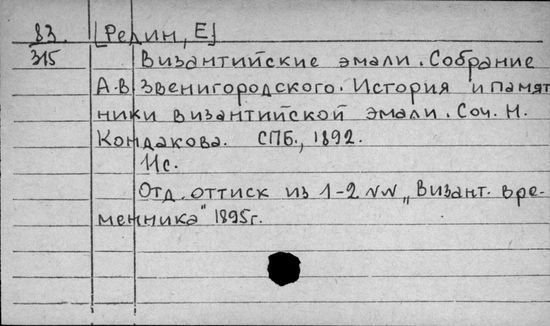 83. [Редин, Е]
315 Византийские эмали. Собрание
А.В Звенигородского. История и памят
ники византийской эмали. Соч. Н.
Кондакова. СПБ., 1892.
11с.
Отд. оттиск из 1-2 NN „Визант. Вре-
менника" 1895г.